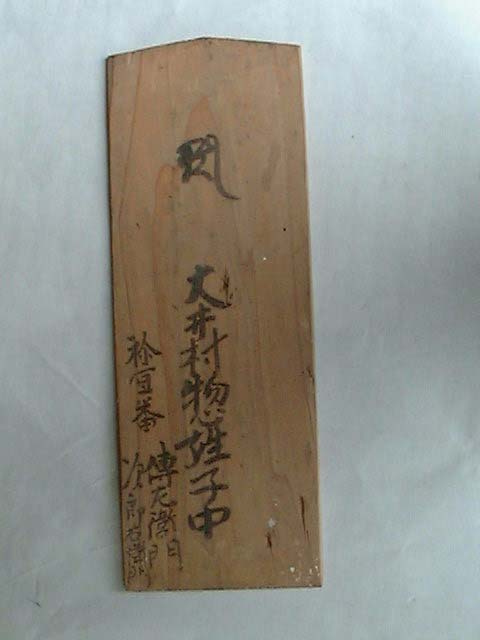 大井村惣子中
拾番
傳左衛門
次郎右衛門